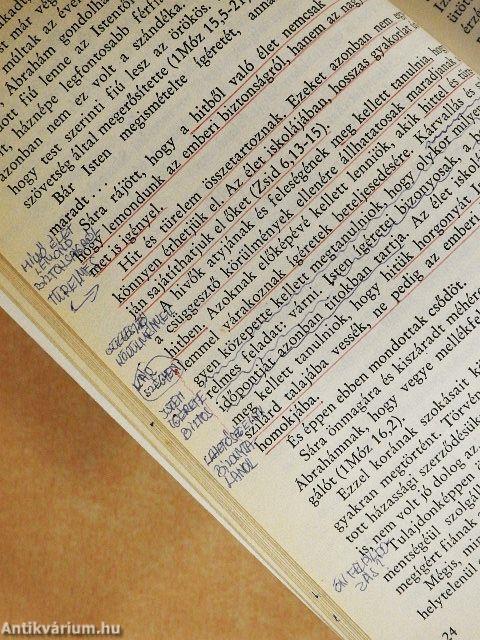 már vége
múltak az évek
Ábrahám gondolha
háznépe legfontosabb férfi
azonban nem ez volt a szándéka,
hogy test szerinti fiú lesz az örökös.
szövetség által megerősítette (1Móz 15,5-21).
Bár Isten megismételte ígéretét, anna
maradt . . .
Sára rájött, hogy a hitből való élet nemcsak
hogy lemondunk az emberi biztonságról, hanem az nagy
met is igényel.
Hit és türelem összetartoznak. Ezeket azonban nem egy
könnyen érhetjük el. Az élet iskolájában, hosszas gyakorlat
án sajátíthatjuk el őket (Zsid 6,13-15).
A hívők atyjának és feleségének meg kellett tanulnia, hogy
a csüggesztő körülmények ellenére állhatatosak maradjanak
hitben. Azoknak előképévé kellett lenniök, akik hittel és türe
lemmel várakoznak ígéretek beteljesedésére. Kárvallás és
gyen közepette kellett megtanulniok, hogy olykor milyen
relmes feladat: várni. Isten ígéretei bizonyosak, a
időpontját azonban titokban tartja. Az élet iskolá
meg kellett tanulniok, hogy hitük horgonyát I
szilárd talajába vessék, ne pedig az emberi
homokjába.
És éppen ebben mondottak csődöt.
Sára önmagára és kiszáradt méhére
Ábrahámnak, hogy vegye mellékfel
gálót (1Móz 16,2).
Ezzel korának szokásait k
gyakran megtörtént. Törvén
tott házassági szerződésük
is nem volt jó dolog az
Tulajdonképpen á
mentségéül szolgál
megígért fiának a
Mégis, min
helytelenül e
24
HITBŐL ÉLET
LEMONDÓ
BIZTONSÁGRÓL
TÜRELMES
KÖRÜLMÉNYEK
KÁR
SZÉGYEN
ISTEN
ÍGÉRETE
BIZTOS
Antikvárium.hu